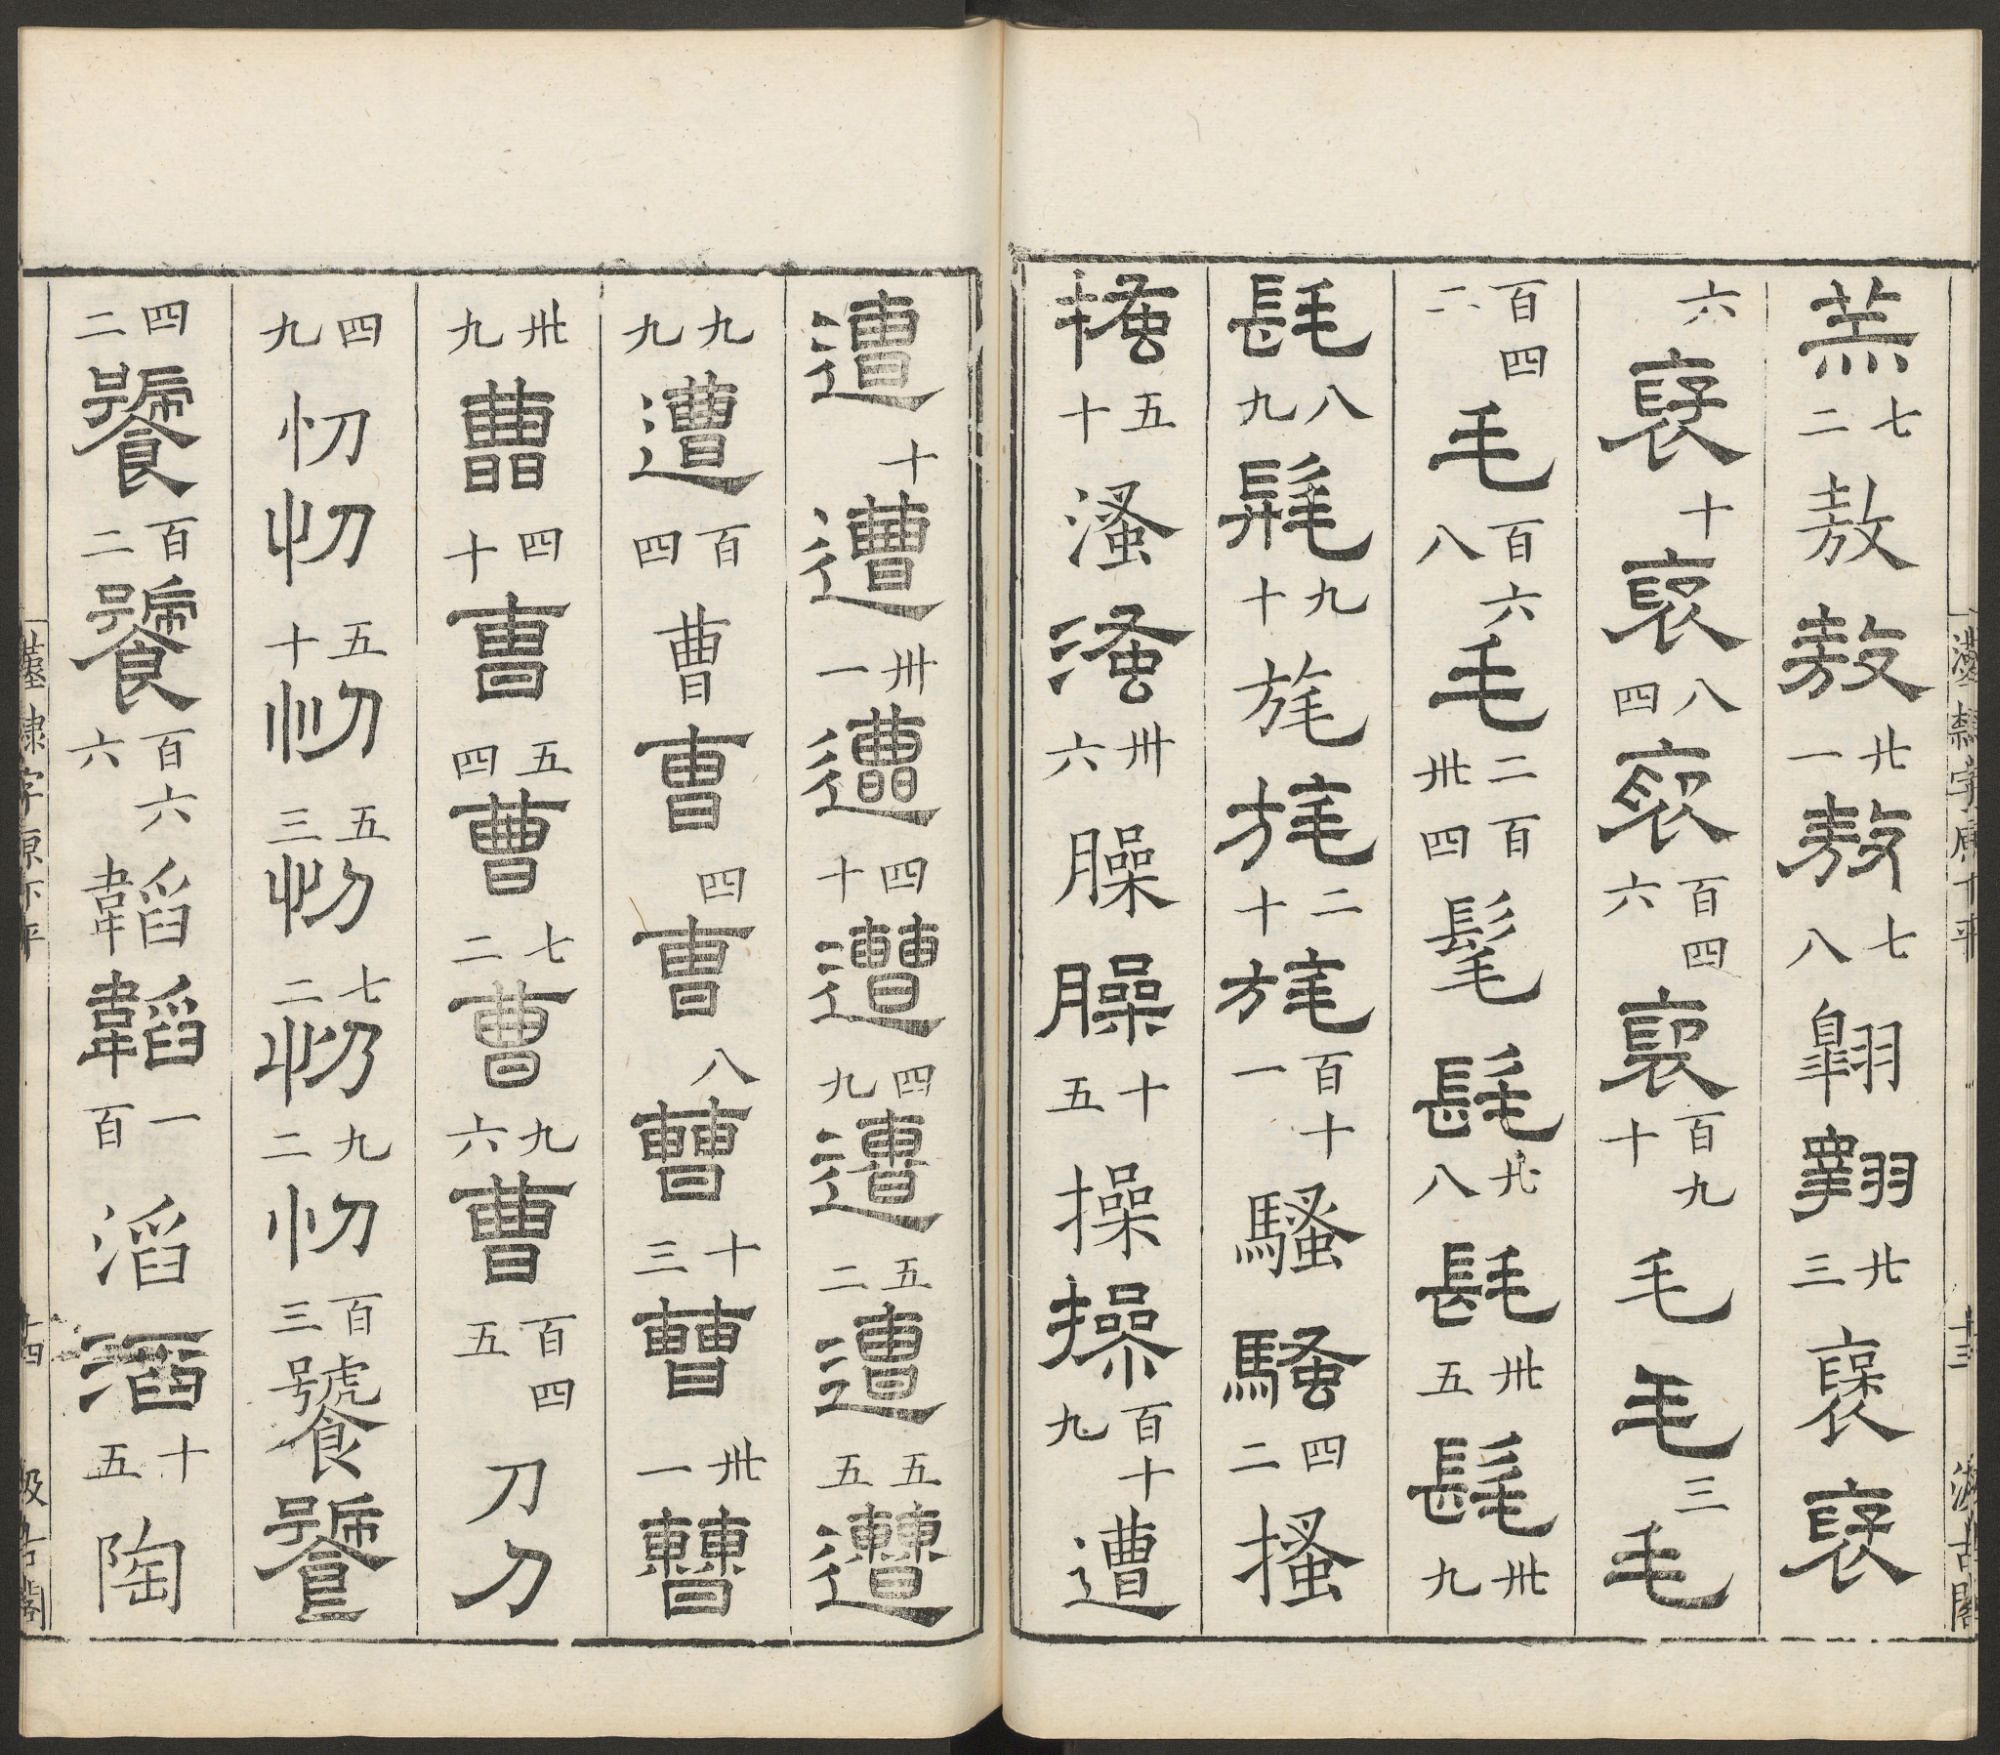 羔七二敖敖廿一敖七八翱翱廿三褒褒
六褒十褒八四褒百四六褒百九十毛毛三毛
百四二毛百六八毛二百卅四髦髦廿八髦卅五髦卅九
髦八九髦九十旄旄二十旄百十一騷騷四二搔
搔五十溞溞卅六臊臊十五操操百十九遭
漢隸字原下平 十三 汲古閣
遭十遭卅一遭四十遭四九遭五二遭五五遭
九九遭百四曹曹四曹八曹十三曹卅一曹
卅九曹四十曹五四曹七二曹九六曹百四五刀刀
四九忉忉五十忉五三忉七二忉九二忉百三饕饕
四二饕百二饕百六六韜韜一百滔滔十五陶
漢隸字原下平 十四 汲古閣